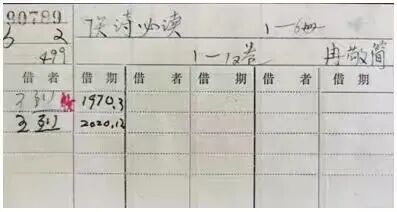 90789 医诗必读 1—6册
3 2
499 1—12卷 冉敬简
借者 借期 借者 借期 借者 借期
王钊 1970.3
王钊 2020.12